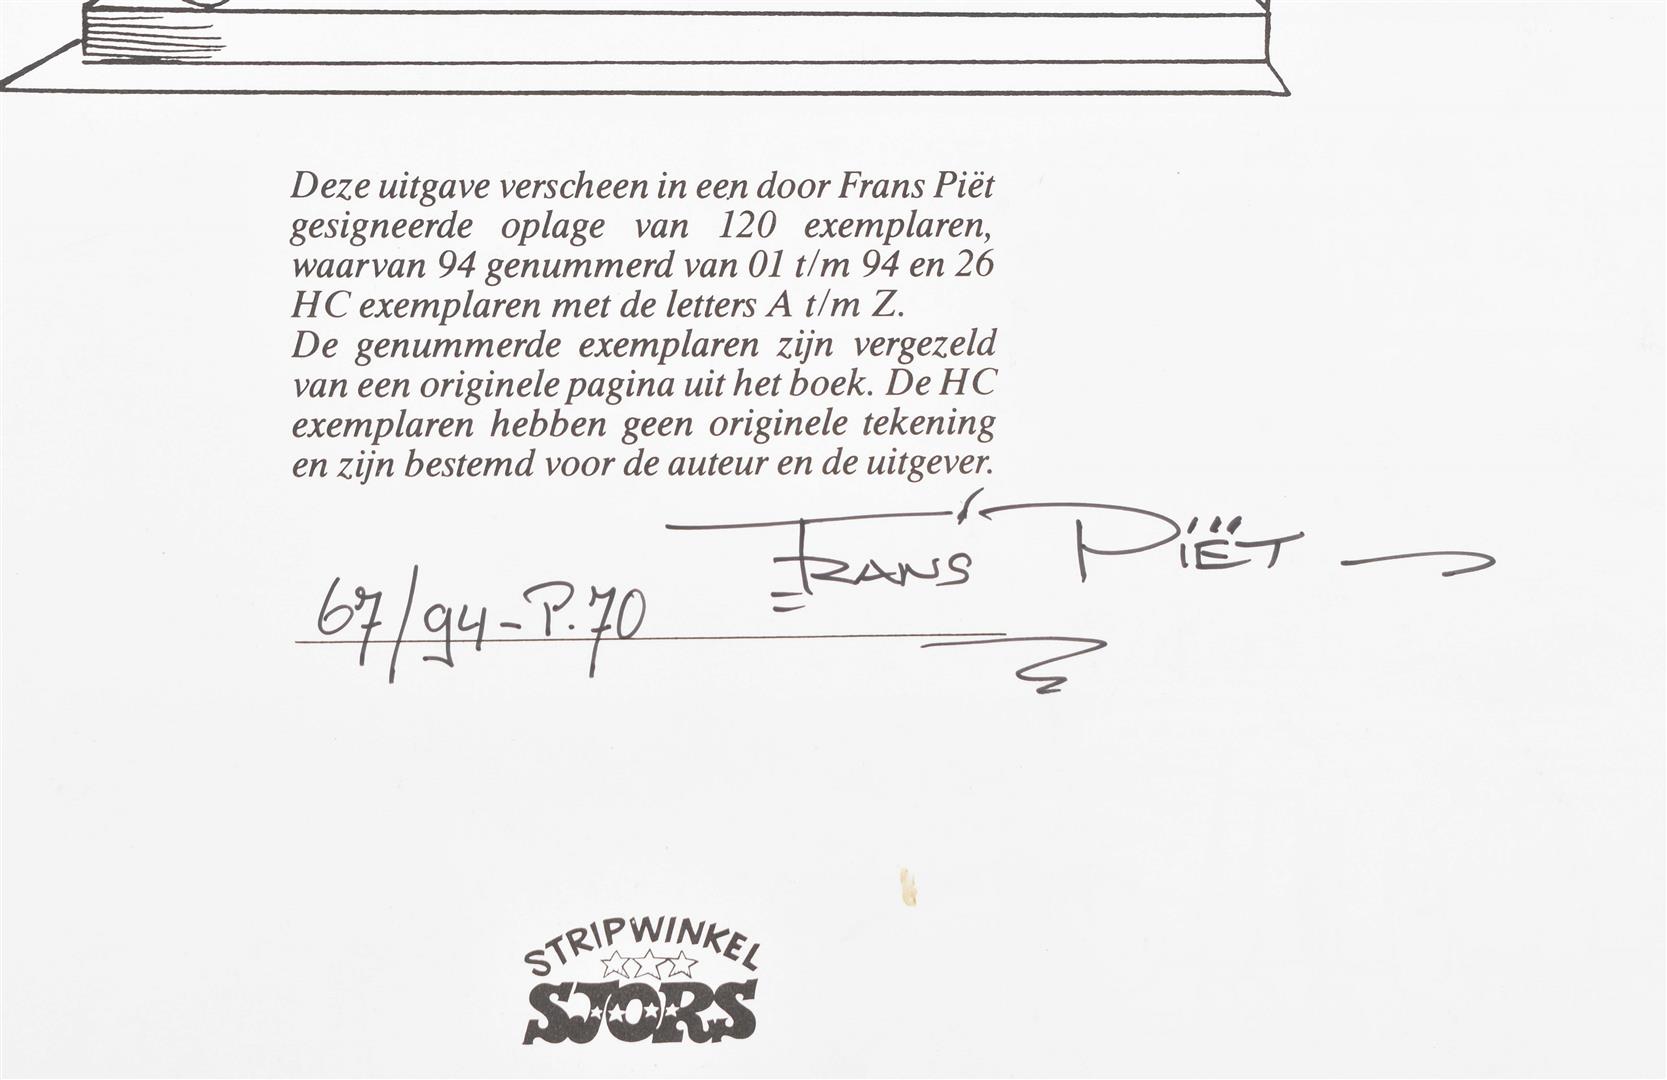 Deze uitgave verscheen in een door Frans Piët
gesigneerde oplage van 120 exemplaren,
waarvan 94 genummerd van 01 t/m 94 en 26
HC exemplaren met de letters A t/m Z.
De genummerde exemplaren zijn vergezeld
van een originele pagina uit het boek. De HC
exemplaren hebben geen originele tekening
en zijn bestemd voor de auteur en de uitgever.
FRANS PIËT
67/94-P.70
STRIPWINKEL
SJORS